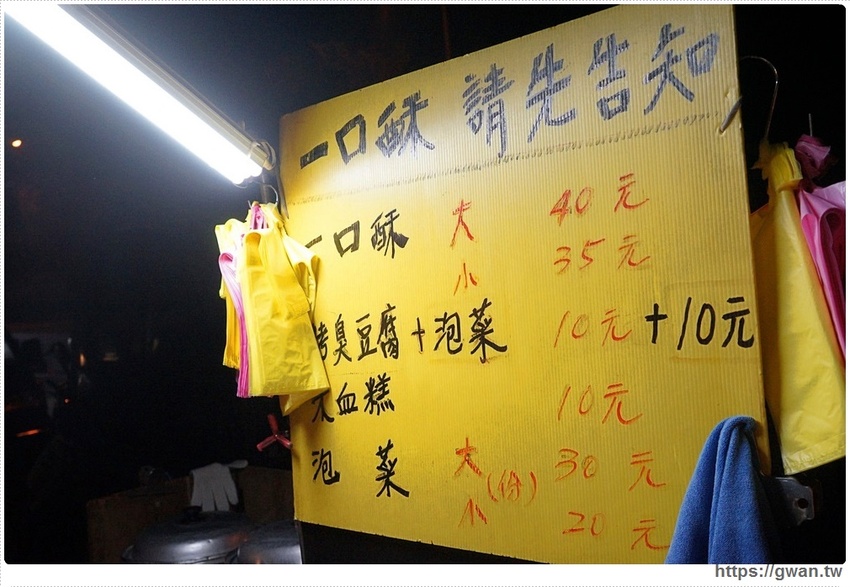 一口酥 請先告知
一口酥 大 40元
小 35元
烤臭豆腐+泡菜 10元+10元
米血糕 10元
泡菜 大 30元
(份)
小 20元
https://gwan.tw